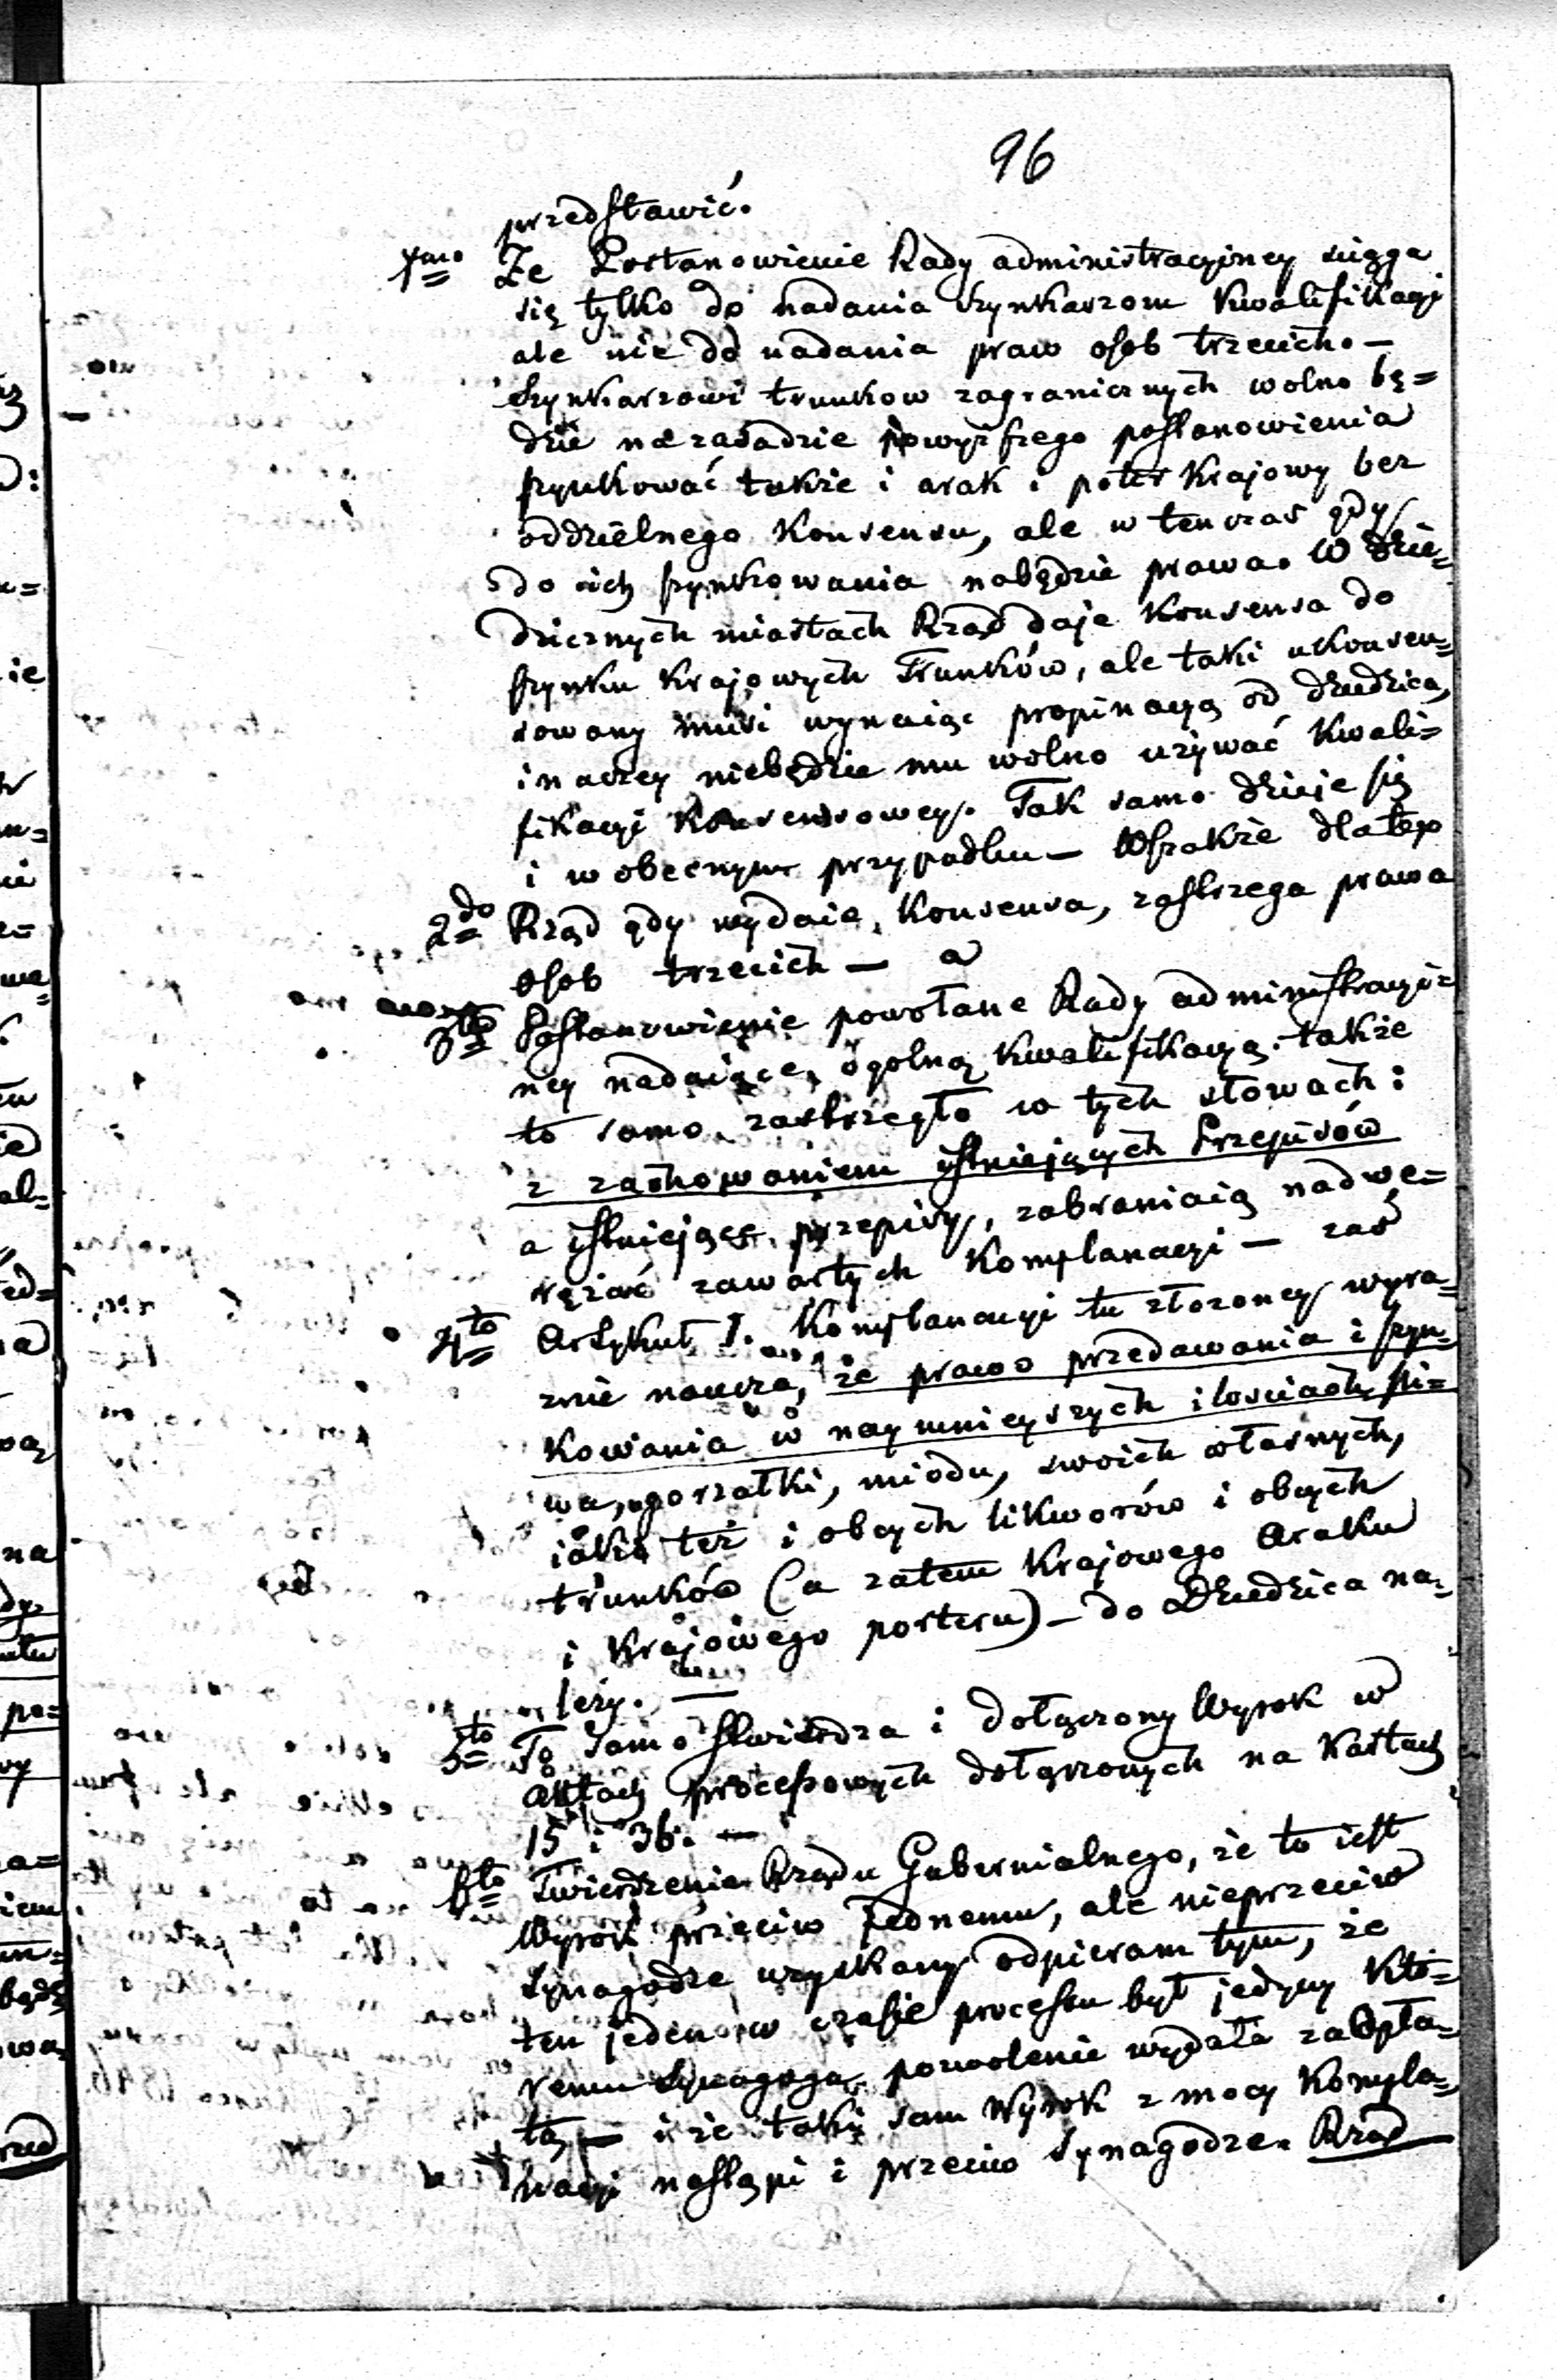 96
przedstawić.
1mo Że Postanowienie Rady administracyiney sięga
się tylko do nadania szynkarzom kwalifikacyi
ale nie do nadania praw osob trzecich. —
Szynkarzowi trunkow zagranicznych wolno bę=
dzie na zasadzie powyższego postanowienia
szynkować także i arak i poter krajowy bez
oddzielnego konsensu, ale w tenczas gdy
do ich szynkowania nabędzie prawa. W dzie=
dzicznych miastach Rząd daje konsensa do
szynku krajowych Trunków, ale taki ukonsen=
sowany musi wynaiąć propinacyą od dziedzica,
inaczey niebędzie mu wolno używać kwali=
fikacyi konsensowey. Tak samo dzieje się
i w obecnym przypadku — Wszakże dlatego
2do Rząd gdy wydaie konsensa, zastrzega prawa
osob trzecich — a
3tio Postanowienie powołane Rady administracyi=
ney nadaiące ogolną kwalifikacyą także
to samo zastrzegło w tych słowach:
z zachowaniem istniejących Przepisów
a istniejące przepisy, zabraniaią nadwe=
rężać zawartych Komplanacyi — zaś
4to Artykuł I. Komplanacyi tu złożoney wyra=
znie naucza, że prawo przedawania i szyn=
kowania w naymnieyszych ilosciach pi=
wa, gorzałki, miodu, swoich własnych,
iako też i obcych likworów i obcych
trunków (a zatem krajowego Araku
i krajowego porteru) — do Dziedzica na=
leży. —
5to To samo stwierdza i dołączony Wyrok w
aktach processowych dołączonych na kartach
15 i 36. —
6to Twierdzenie Rządu Gubernialnego, że to iest
Wyrok przeciw jednemu, ale nieprzeciw
Synagodze uzyskany odpieram tym, że
ten jeden w czasie processu był jedyny któ=
remu Synagoga pozwolenie wydała za opła=
tą — i że taki sam Wyrok z mocy Kompla=
nacyi nastąpi i przeciw Synagodze. Rząd